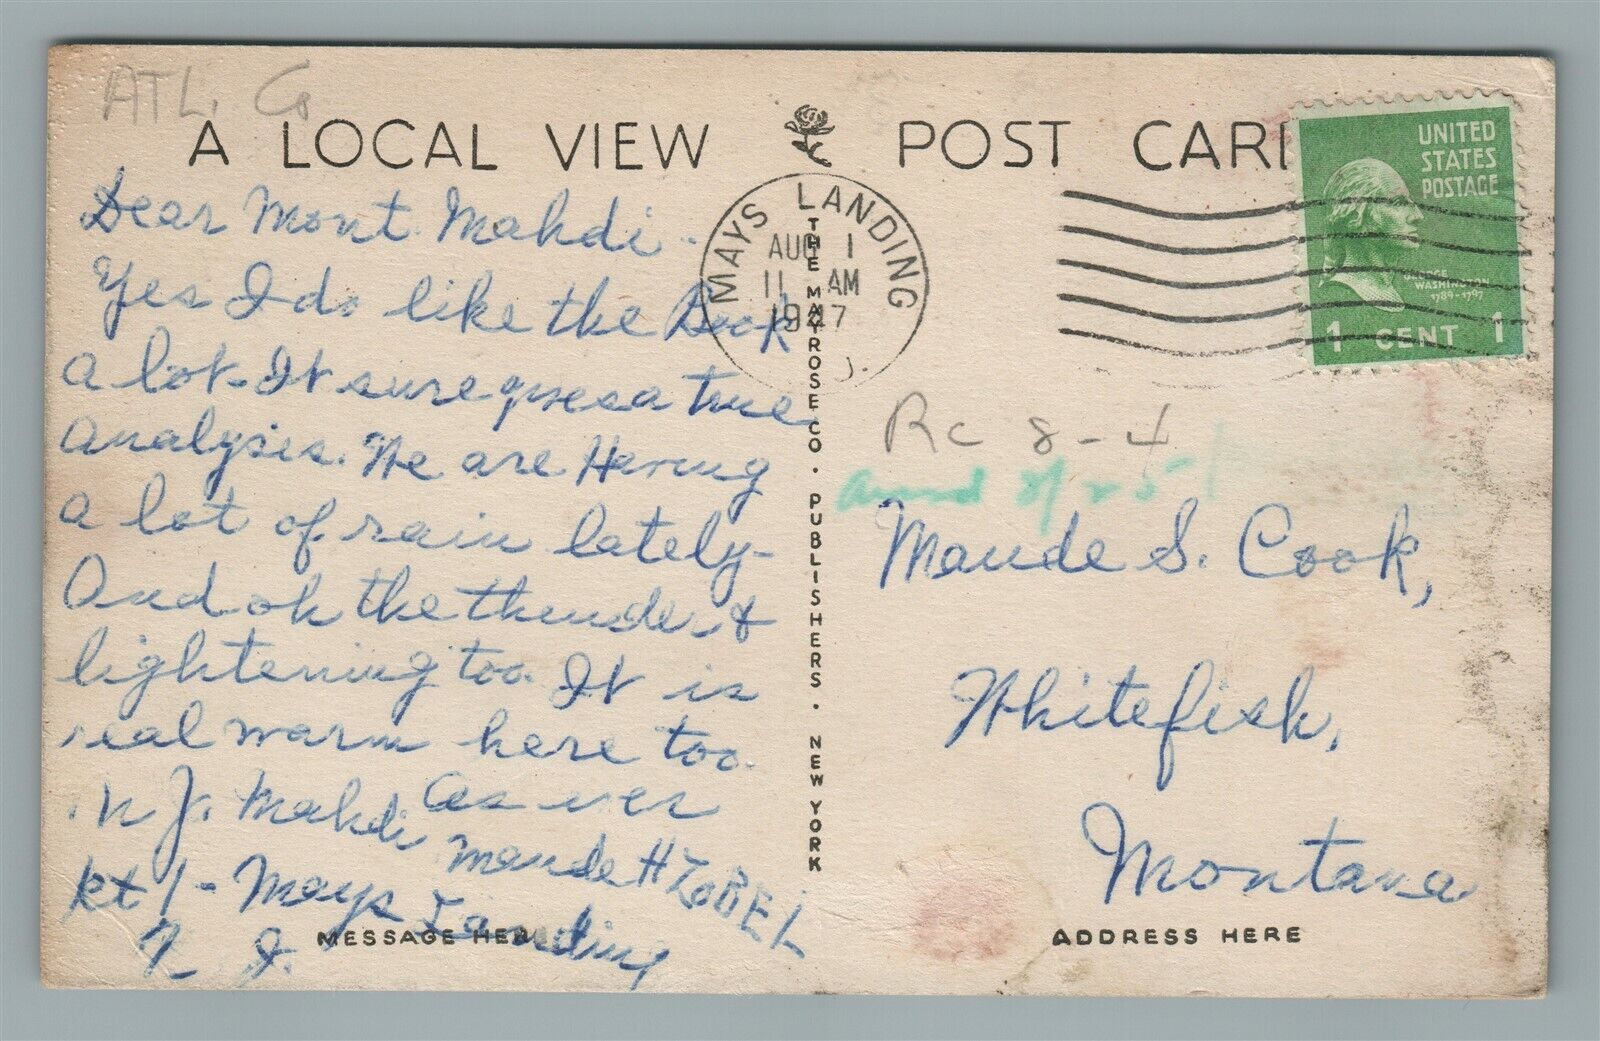 ATL. Co
A LOCAL VIEW POST CAR
UNITED
STATES
POSTAGE
GEORGE
WASHINGTON
1789-1797
1 CENT 1
MAYS LANDING
AUG 1
11 AM
1947
J.
THE MAYROSE CO. PUBLISHERS. NEW YORK
Dear Mont. Mahdi -
Yes I do like the Book
a lot. It sure gives a true
analysis. We are Having
a lot of rain lately-
And oh the thunder &
lightening too. It is
real warm here too.
as ever
N J. Mahdi
Maude H ZOBEL
Rt 1 - Mays Landing
N. J.
MESSAGE HER
Rc 8-4
8/25
Maude S. Cook,
Whitefish,
Montana
ADDRESS HERE